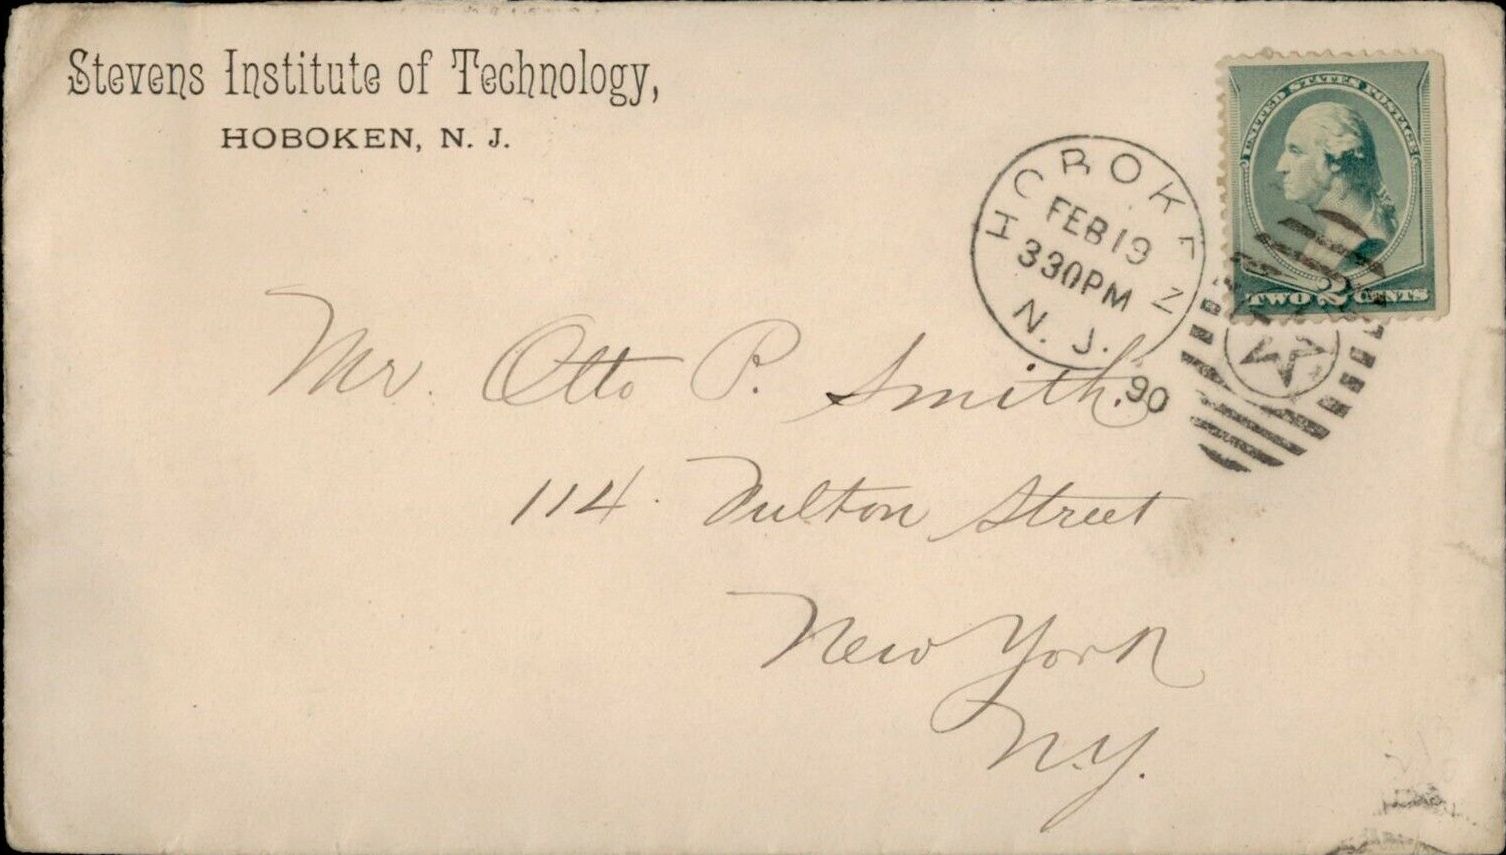 Stevens Institute of Technology,
HOBOKEN, N. J.
UNITED STATES POSTAGE
TWO 2 CENTS
HOBOKEN
FEB 19
330PM
N. J.
90
Mr. Otto P. Smith.
114 Fulton Street
New York
N.Y.